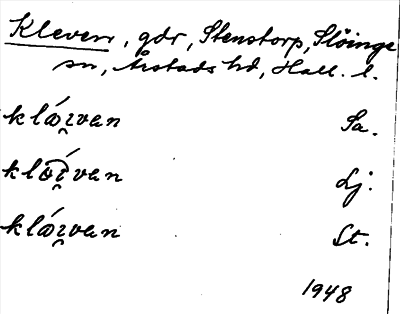 Kleven, gdr, Stenstorp, Slöinge
sn, Årstads hd, Hall. l.
klǿi̯van Sa.
klǿi̯van Lj.
klǿi̯van St.
1948